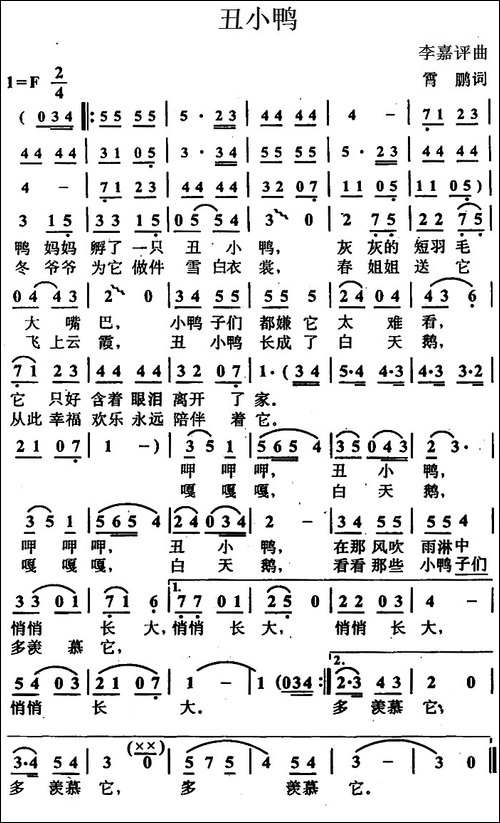 丑小鸭
李嘉评曲
1=F 2/4
霄 鹏词
( 034 ‖: 55 55 | 5· 23 | 44 44 | 4 – | 71 23 |
44 44 | 31 05 | 3· 34 | 55 55 | 5· 23 | 44 44 |
4 – | 71 23 | 44 44 | 32 07 | 11 05 | 11 05 ) |
3 15 | 33 15 | 05 54 | 3 0 | 2 75 | 22 75 |
鸭 妈妈 孵了 一只 丑 小 鸭, 灰 灰的 短羽 毛
冬 爷爷 为它 做件 雪 白衣 裳, 春 姐姐 送 它
04 43 | 2 0 | 34 55 | 55 51 | 24 04 | 43 6 |
大 嘴 巴, 小鸭 子们 都嫌 它 太 难 看,
飞 上云 霞, 丑 小鸭 长成 了 白 天 鹅,
71 23 | 44 44 | 32 07 | 1· (34 | 5·4 4·3 | 4·3 3·2 |
它 只好 含着 眼泪 离开 了 家。
从此 幸福 欢乐 永远 陪伴 着 它。
21 07 | 1 –) | 35 1 | 565 4 | 35 043 | 2 3· |
呷 呷呷 呷, 丑 小 鸭,
嘎 嘎嘎 嘎, 白 天 鹅,
35 1 | 565 4 | 24 034 | 2 0 | 34 55 | 55 4 |
呷 呷呷 呷, 丑 小 鸭, 在那 风吹 雨淋中
嘎 嘎嘎 嘎, 白 天 鹅, 看看 那些 小鸭子们
33 01 | 71 6 | 1. 77 01 | 25 0 | 22 03 | 4 – |
悄悄 长 大, 悄悄 长 大, 悄悄 长 大,
多羡 慕 它,
54 03 | 21 07 | 1 – | 1 (034 :‖ 2. 2·3 43 | 2 0 |
悄悄 长 大。 多 羡慕 它,
3·4 54 | 3 0 (××) | 575 | 4 54 | 3 – | 3 0 ‖
多 羡慕 它, 多 羡慕 它。